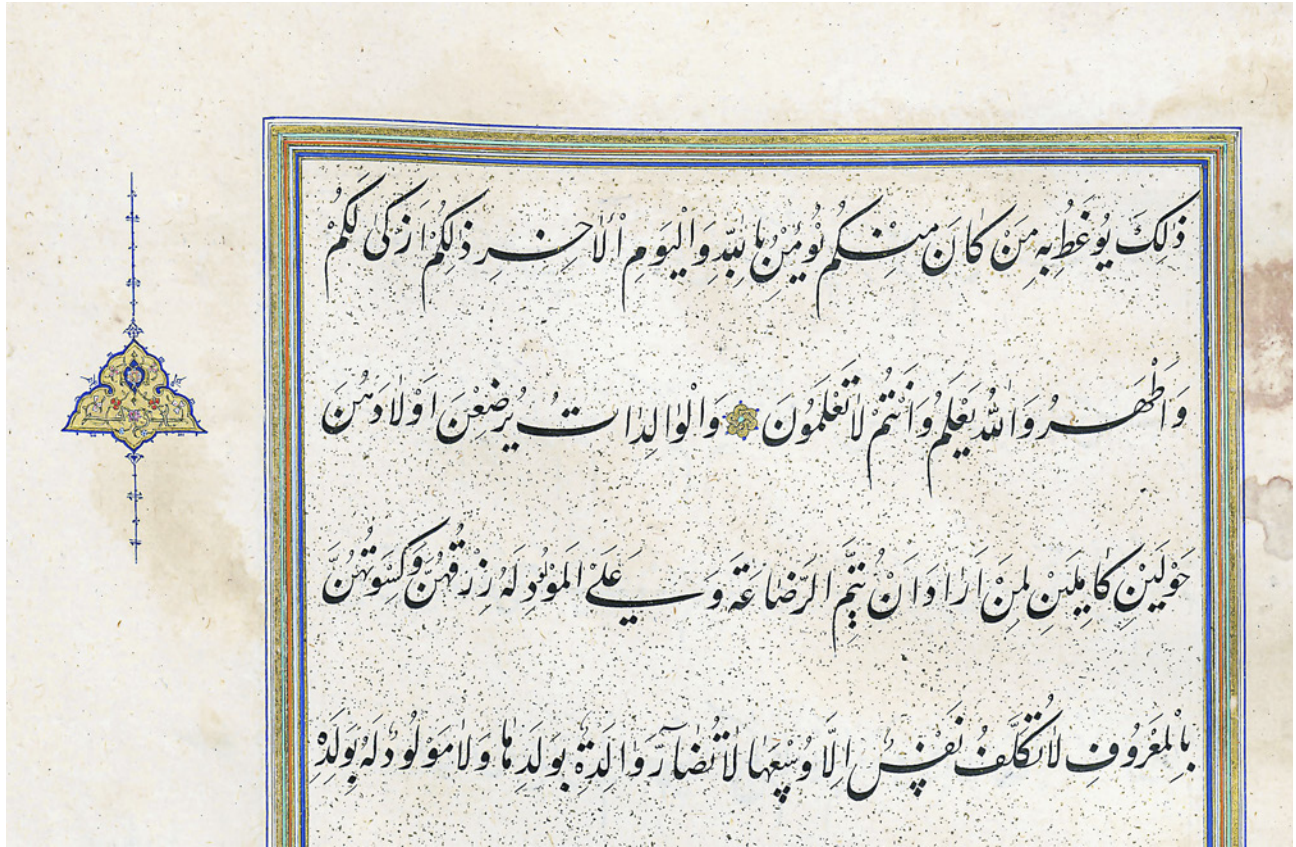 ذٰلِكَ يُوعَظُ بِهِ مَنْ كَانَ مِنْكُمْ يُؤْمِنُ بِاللّٰهِ وَالْيَوْمِ الْاٰخِرِ ذٰلِكُمْ اَزْكٰى لَكُمْ
وَاَطْهَرُ وَاللّٰهُ يَعْلَمُ وَاَنْتُمْ لَا تَعْلَمُونَ وَالْوَالِدَاتُ يُرْضِعْنَ اَوْلَادَهُنَّ
حَوْلَيْنِ كَامِلَيْنِ لِمَنْ اَرَادَ اَنْ يُتِمَّ الرَّضَاعَةَ وَعَلَى الْمَوْلُودِ لَهُ رِزْقُهُنَّ وَكِسْوَتُهُنَّ
بِالْمَعْرُوفِ لَا تُكَلَّفُ نَفْسٌ اِلَّا وُسْعَهَا لَا تُضَارَّ وَالِدَةٌ بِوَلَدِهَا وَلَا مَوْلُودٌ لَهُ بِوَلَدِهِ